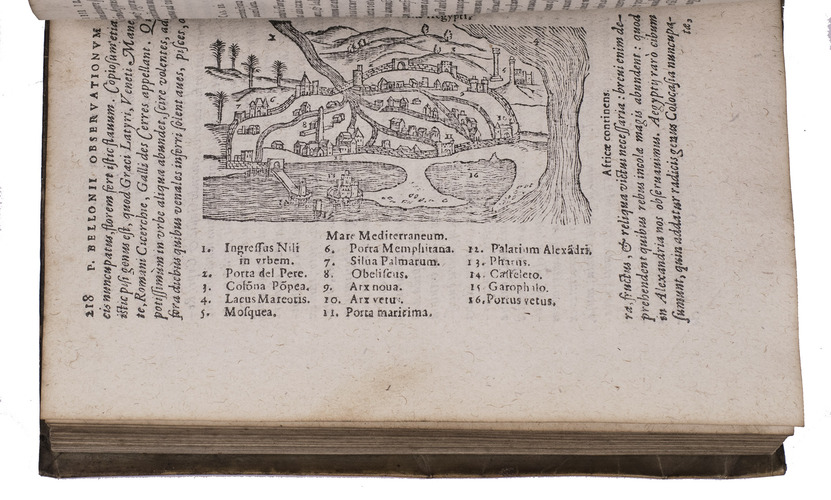 218 P. BELLONII OBSERVATIONVM
cis nuncupatus, florem fert istic flauum. Copiosum etiā
istic pisi genus est, quod Græci Latyri, Veneti Mane
te, Romani Cicerchie, Galli des Cerres appellant.
potissimum in vrbe aliqua abundet, scire volentes, ad
fora diebus quibus venales inferri solent aues, pisces, o
Mare Mediterraneum.
1. Ingressus Nili
in vrbem.
2. Porta del Pere.
3. Colōna Pōpea.
4. Lacus Mareotis.
5. Mosquea.
6. Porta Memphitana.
7. Silua Palmarum.
8. Obeliscus.
9. Arx noua.
10. Arx vetus.
11. Porta maritima.
12. Palatium Alexādri.
13. Pharus.
14. Casteleto.
15 Garophilo.
16. Portus vetus.
Africæ continens.
ra, fructus, & reliqua victui necessaria: breui enim de-
prehendent quibus rebus incolæ magis abundent: quod
in Alexandria nos obseruauimus. Aegyptij raro cibum
sumunt, quin addatur radicis genus Colocasia nuncupa-
te,